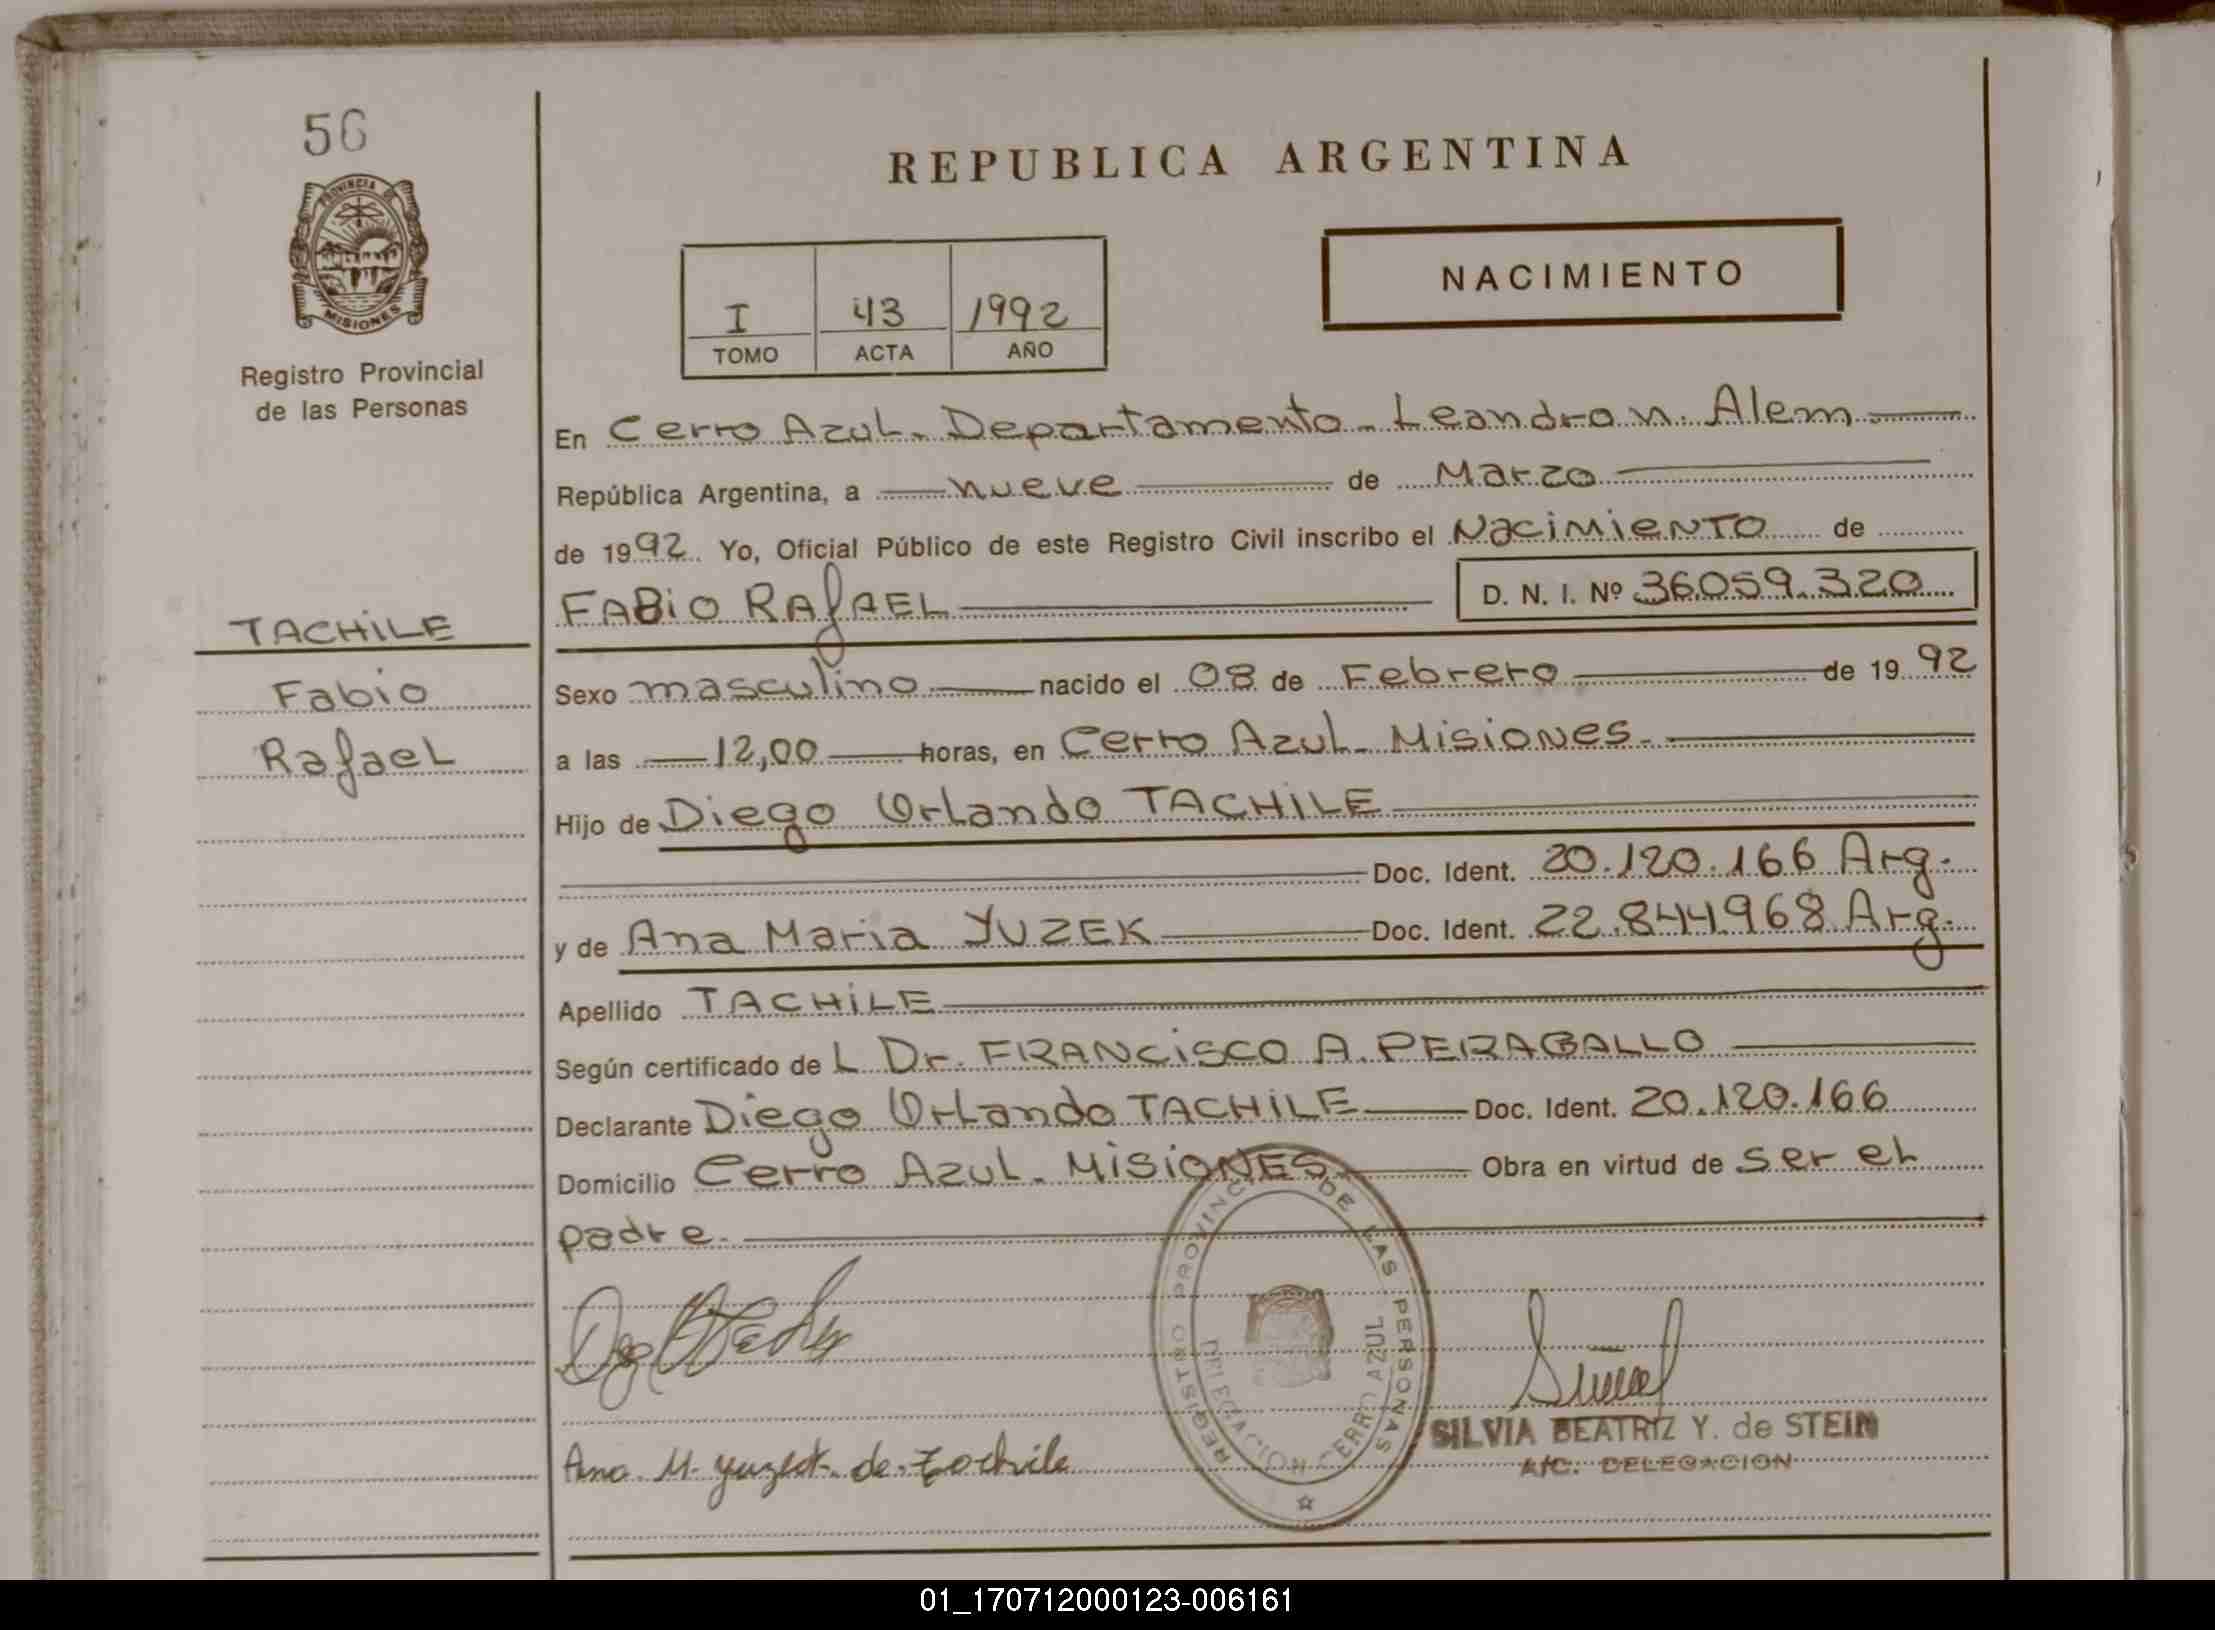 56
PROVINCIA DE
MISIONES
Registro Provincial
de las Personas
TACHILE
Fabio
Rafael
REPUBLICA ARGENTINA
NACIMIENTO
I 43 1992
TOMO ACTA AÑO
En Cerro Azul. Departamento. Leandro n. Alem
República Argentina, a nueve de Marzo
de 1992. Yo, Oficial Público de este Registro Civil inscribo el Nacimiento de
FABIO RAfAEL D. N. I. Nº 36.059.320
Sexo masculino nacido el 08 de Febrero de 19 92
a las 12,00 horas, en Cerro Azul. Misiones.
Hijo de Diego Orlando TACHILE
Doc. Ident. 20.120.166 Arg.
y de Ana Maria YUZEK Doc. Ident. 22.844.968 Arg.
Apellido TACHILE
Según certificado de L Dr. FRANCISCO A. PERAGALLO
Declarante Diego Orlando TACHILE Doc. Ident. 20.120.166
Domicilio Cerro Azul. MISIONES Obra en virtud de ser el
padre.
REGISTRO PROVINCIAL DE LAS PERSONAS
DELEGACION CERRO AZUL
Ana M. Yuzek de Tachile
SILVIA BEATRIZ Y. de STEIN
A/C. DELEGACION
01_170712000123-006161